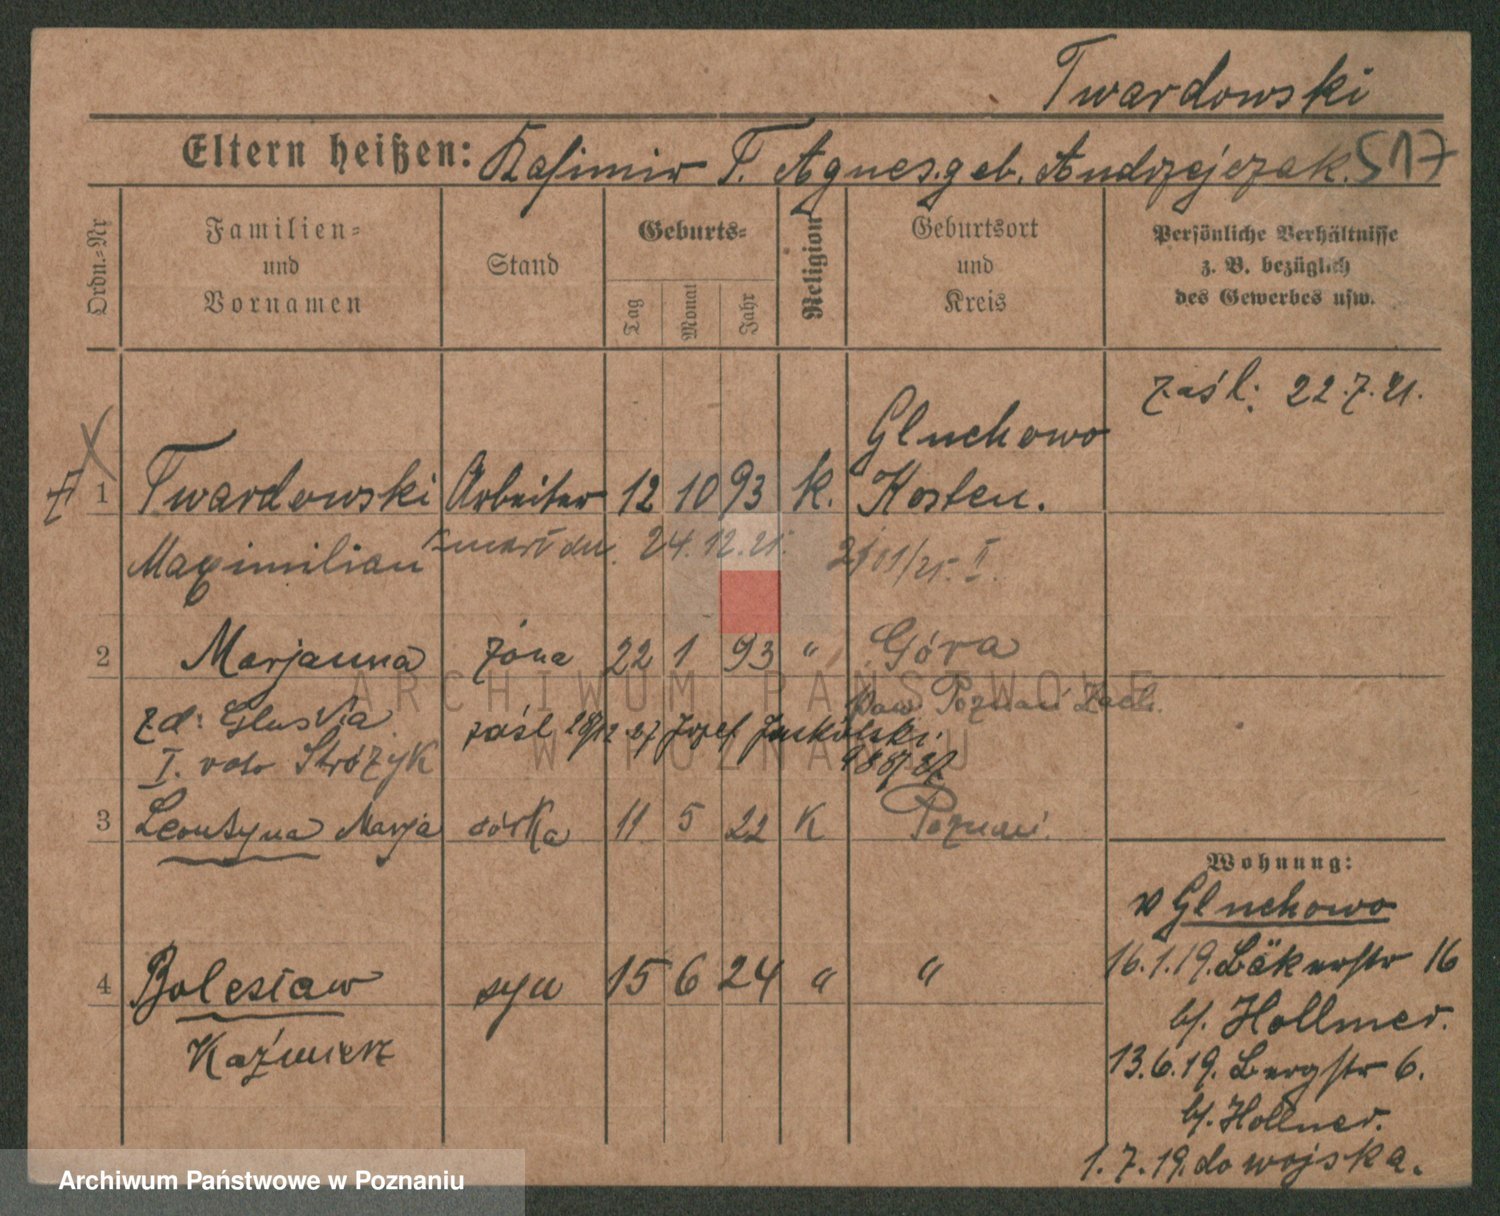 Twardowski
Eltern heißen: Kasimir T. Agnes. geb. Andrzejczak. 517
Ordn.-Nr
Familien- und Vornamen
Stand
Geburts-
Tag
Monat
Jahr
Religion
Geburtsort und Kreis
Persönliche Verhältnisse z. B. bezüglich des Gewerbes usw.
zaśl: 22.7.21.
1 Twardowski Arbeiter 12 10 93 k. Gluchowo Kosten.
Maximilian 24.12.25. II.
2 Marjanna żona 22 1 93 " Góra
zd: pow Poznań Zach.
I. voto Stróżyk zaśl Józef Jaskólski.
3 Leontyna Marja córka 11 5 22 K Poznań.
4 Bolesław syn 15 6 24 " "
Kaźmierz
Wohnung:
v Gluchowo
16.1.19. Bäkerstr 16
b/. Hollmer.
13.6.19. Bergstr 6.
b/. Hollner.
1.7.19. do wojska.
ARCHIWUM PAŃSTWOWE
W POZNANIU
Archiwum Państwowe w Poznaniu